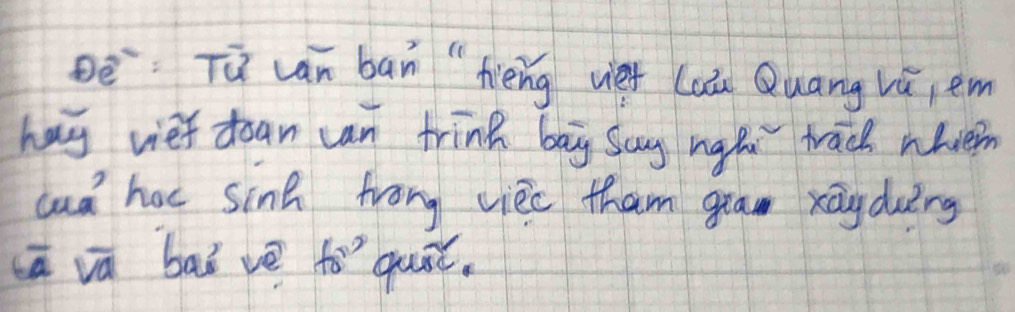 Đề: Từ văn bản "tiếng việt Lưu Quang vũ, em
hãy viết đoạn văn trình bày suy nghĩ trách nhiệm
của học sinh trong việc tham gia xây dựng
và bảo vệ tổ quốc.